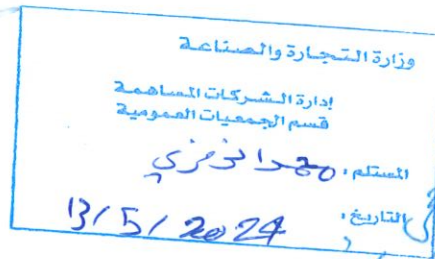 وزارة التجارة والصناعة
إدارة الشركات المساهمة
قسم الجمعيات العمومية
المستلم :
التاريخ :
13/5/2024